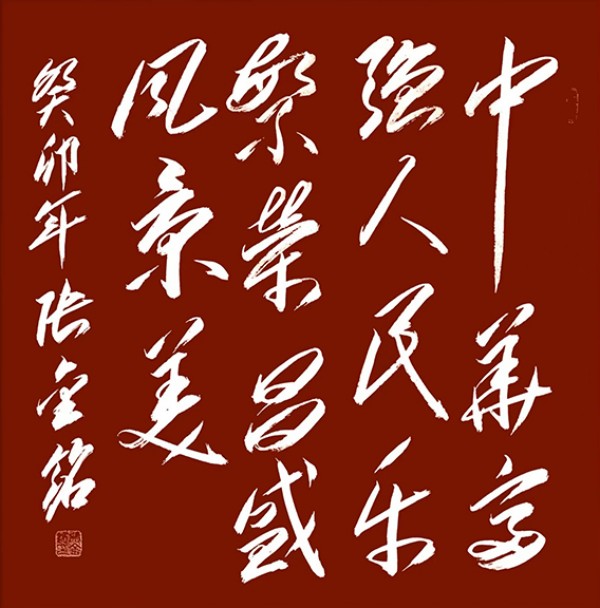 中华富
强人民乐
繁荣昌盛
风景美
癸卯年张金铭